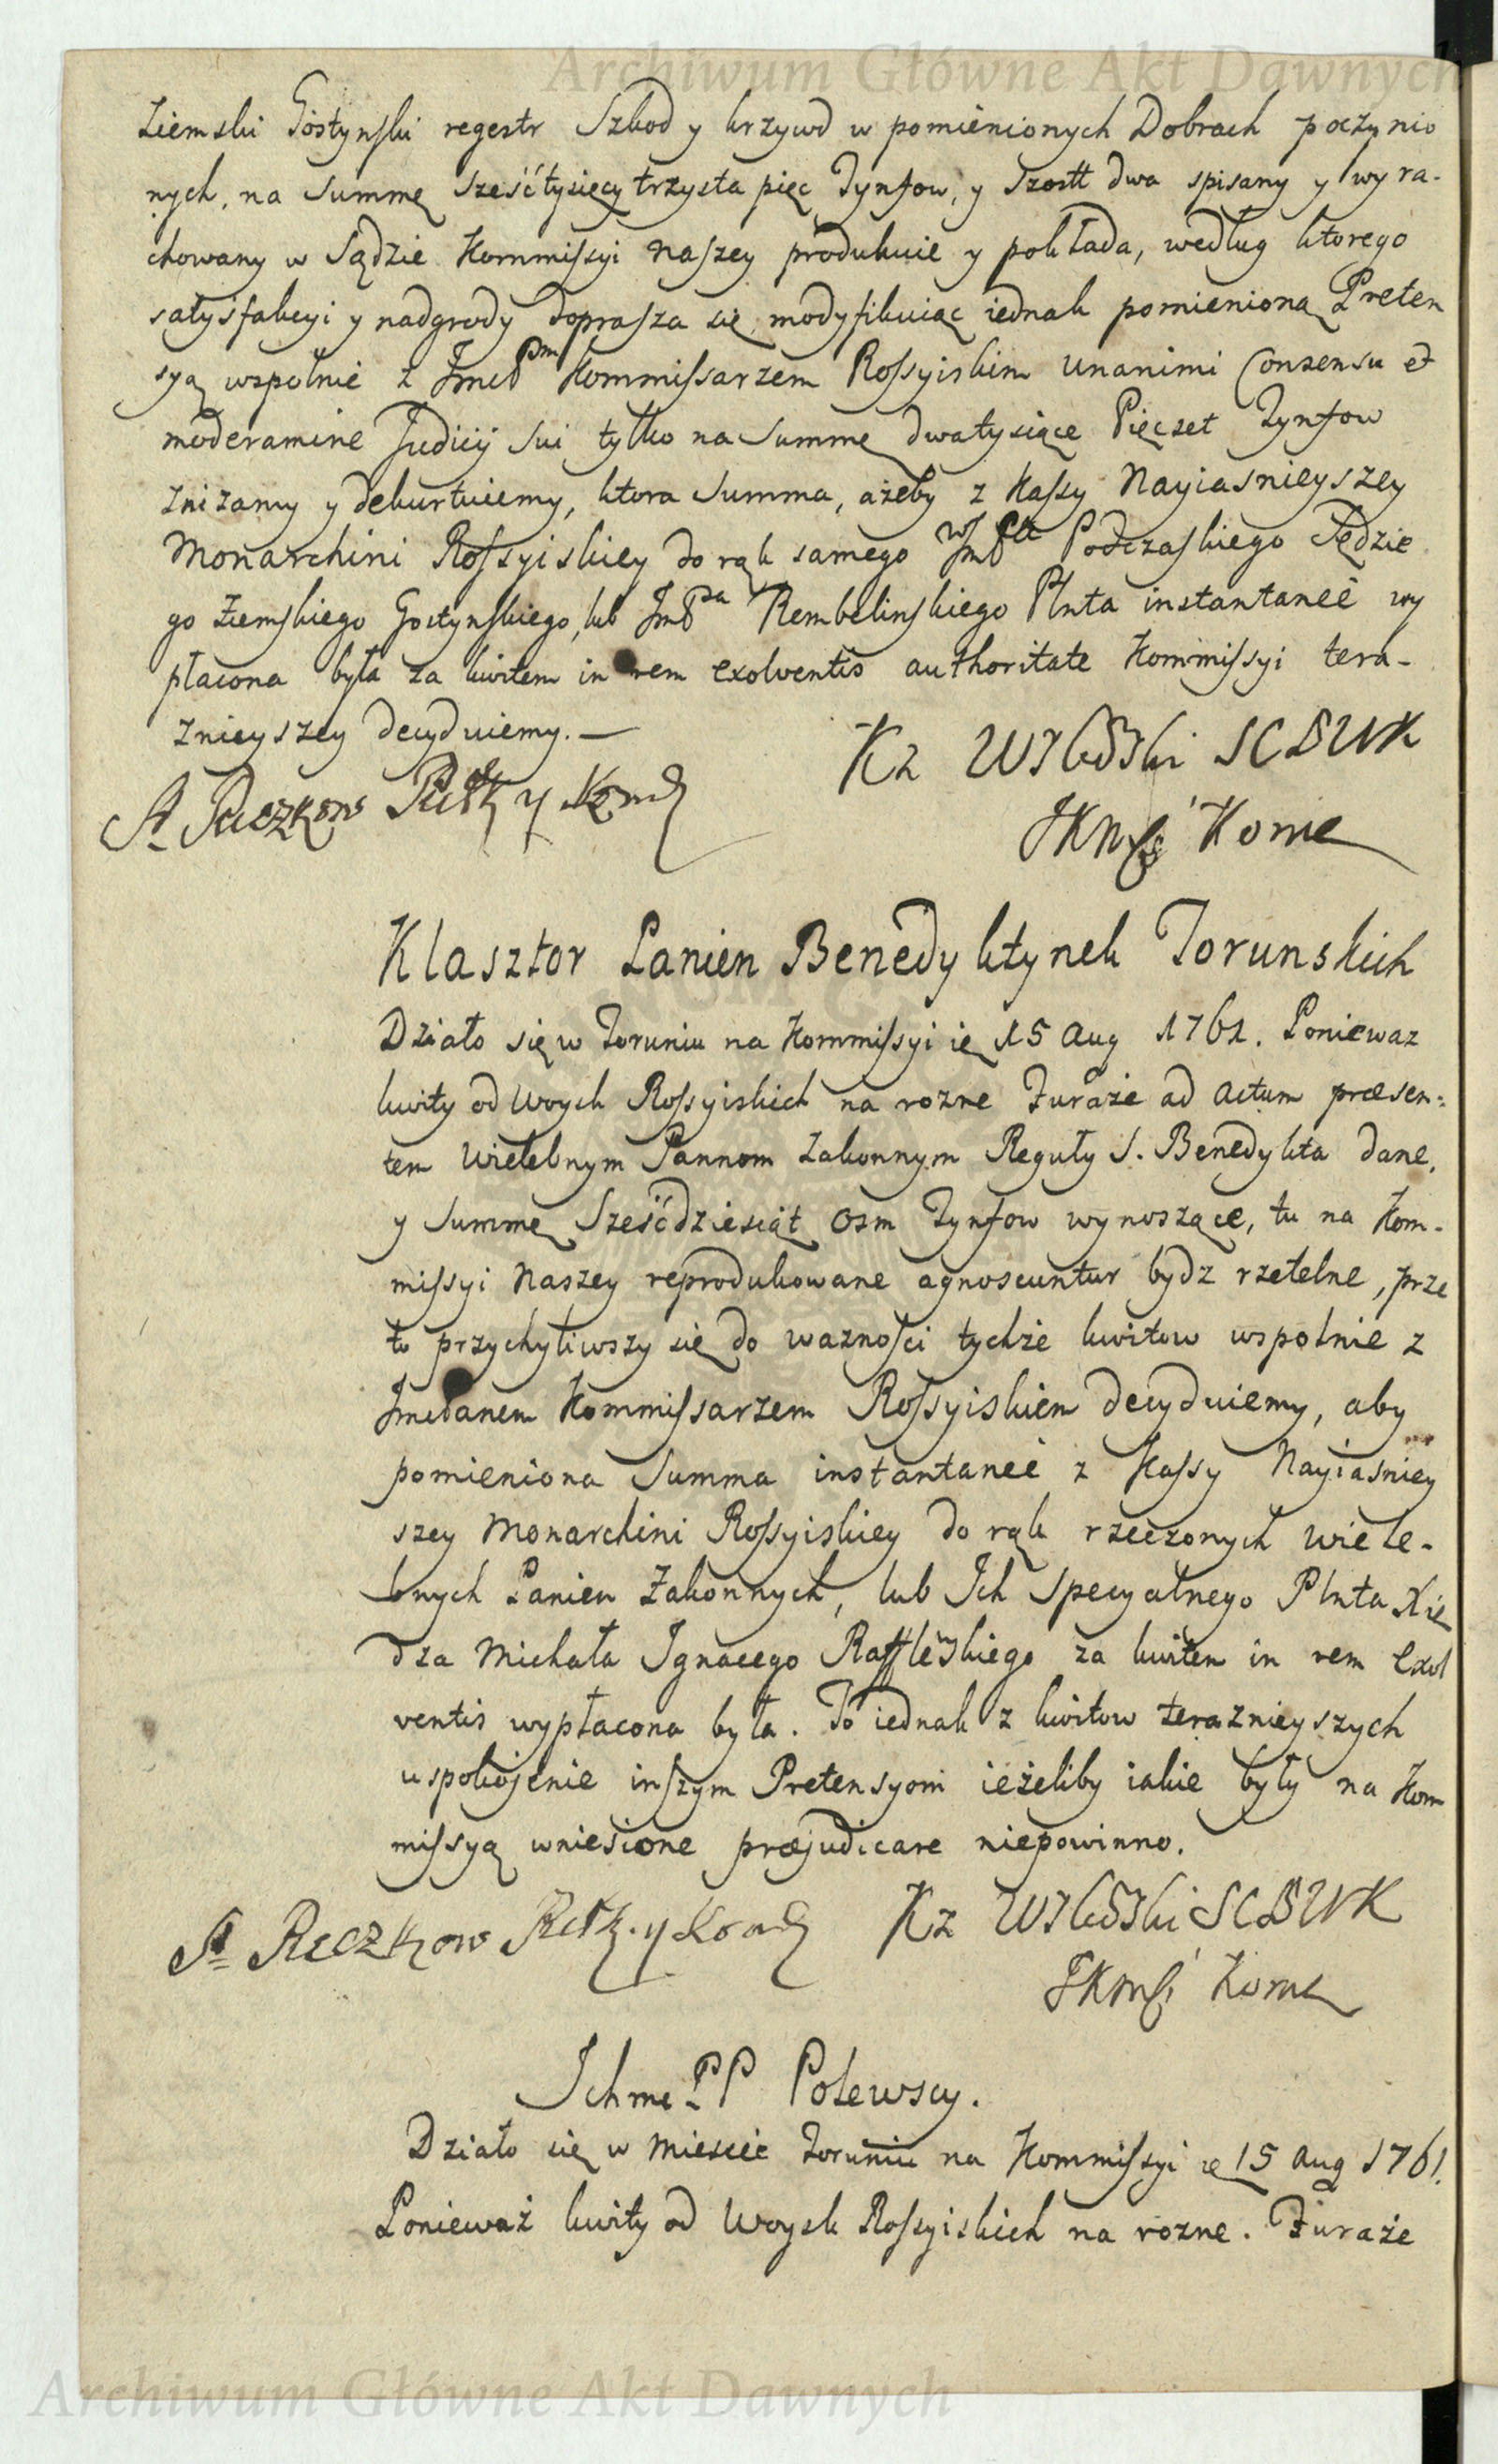 Archiwum Główne Akt Dawnych
Ziemski Gostynski regestr Szkod y krzywd w pomienionych Dobrach poczynio
nych, na Summę sześć tysięcy trzysta pięc Tynfow, y Szostt dwa spisany y wyra-
chowany w Sądzie Kommissyi naszey produkuie y pokłada, według ktorego
satysfakcyi y nadgrody doprasza się, modyfikuiąc iednak pomienioną Preten
syą wspolnie z Jmcią Pm Kommissarzem Rossyiskim unanimi Consensu et
moderamine Judicij sui tylko na Summę dwatysiące Pięcset Tynfow
znizamy y dekurtuiemy, ktora Summa, ażeby z Kassy Nayiasnieyszey
Monarchini Rossyiskiey do rąk samego WJmPa Podczaskiego Sędzie
go Ziemskiego Gostynskiego, lub JmPa Rembelinskiego Plnta instantaneè wy
płacona była za kwitem in rem exolventis authoritate Kommissyi tera-
znieyszey decyduiemy. —
Kz SCBWK
Kome
Klasztor Panien Benedyktynek Torunskich
Działo się w Toruniu na Kommissyi ię 15 Aug 1761. Poniewaz
kwity od Woysk Rossyiskich na rozne Furaże ad Actum præsen=
tem Wielebnym Pannom Zakonnym Reguły S. Benedykta dane,
y Summę Sześćdziesiąt Osm Tynfow wynoszące, tu na Kom-
missyi Naszey reprodukowane agnoscuntur bydz rzetelne, prze
to przychyliwszy się do waznosci tychże kwitow wspolnie z
JmcPanem Kommissarzem Rossyiskim decyduiemy, aby
pomieniona Summa instantaneè z Kassy Nayiasniey
szey Monarchini Rossyiskiey do rąk rzeczonych Wiele-
bnych Panien Zakonnych, lub Ich specyalnego Plnta Xię
dza Michała Ignacego za kwitem in rem Exol
ventis wypłacona była. To iednak z kwitow teraznieyszych
uspokojenie inszym Pretensyom ieżeliby iakie były na Kom
missyą wniesione præjudicare niepowinno.
Kz SCBWK
Kome
Ichmc PP Polewscy.
Działo się w Miescie Toruniu na Kommissyi ię 15 Aug 1761.
Ponieważ kwity od Woysk Rossyiskich na rozne. Furaże
Archiwum Główne Akt Dawnych